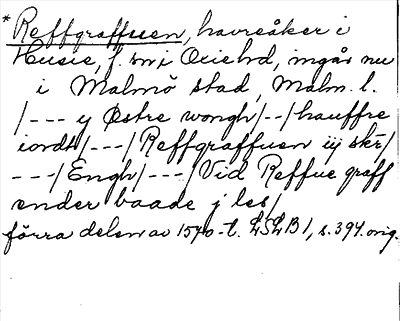 * Reffgraffuen, havreåker i
Husie, f. sn, i Oxie hd, ingår nu
i Malmö stad, Malm. l.
/--- y Østre wongh/--/hauffre
iordt/---/Reffgraffuen iij sker/
---/Engh/---/Vid Reffue graff
ender baade j les/
förra delen av 1570-t. LSLB1, s. 394. orig.